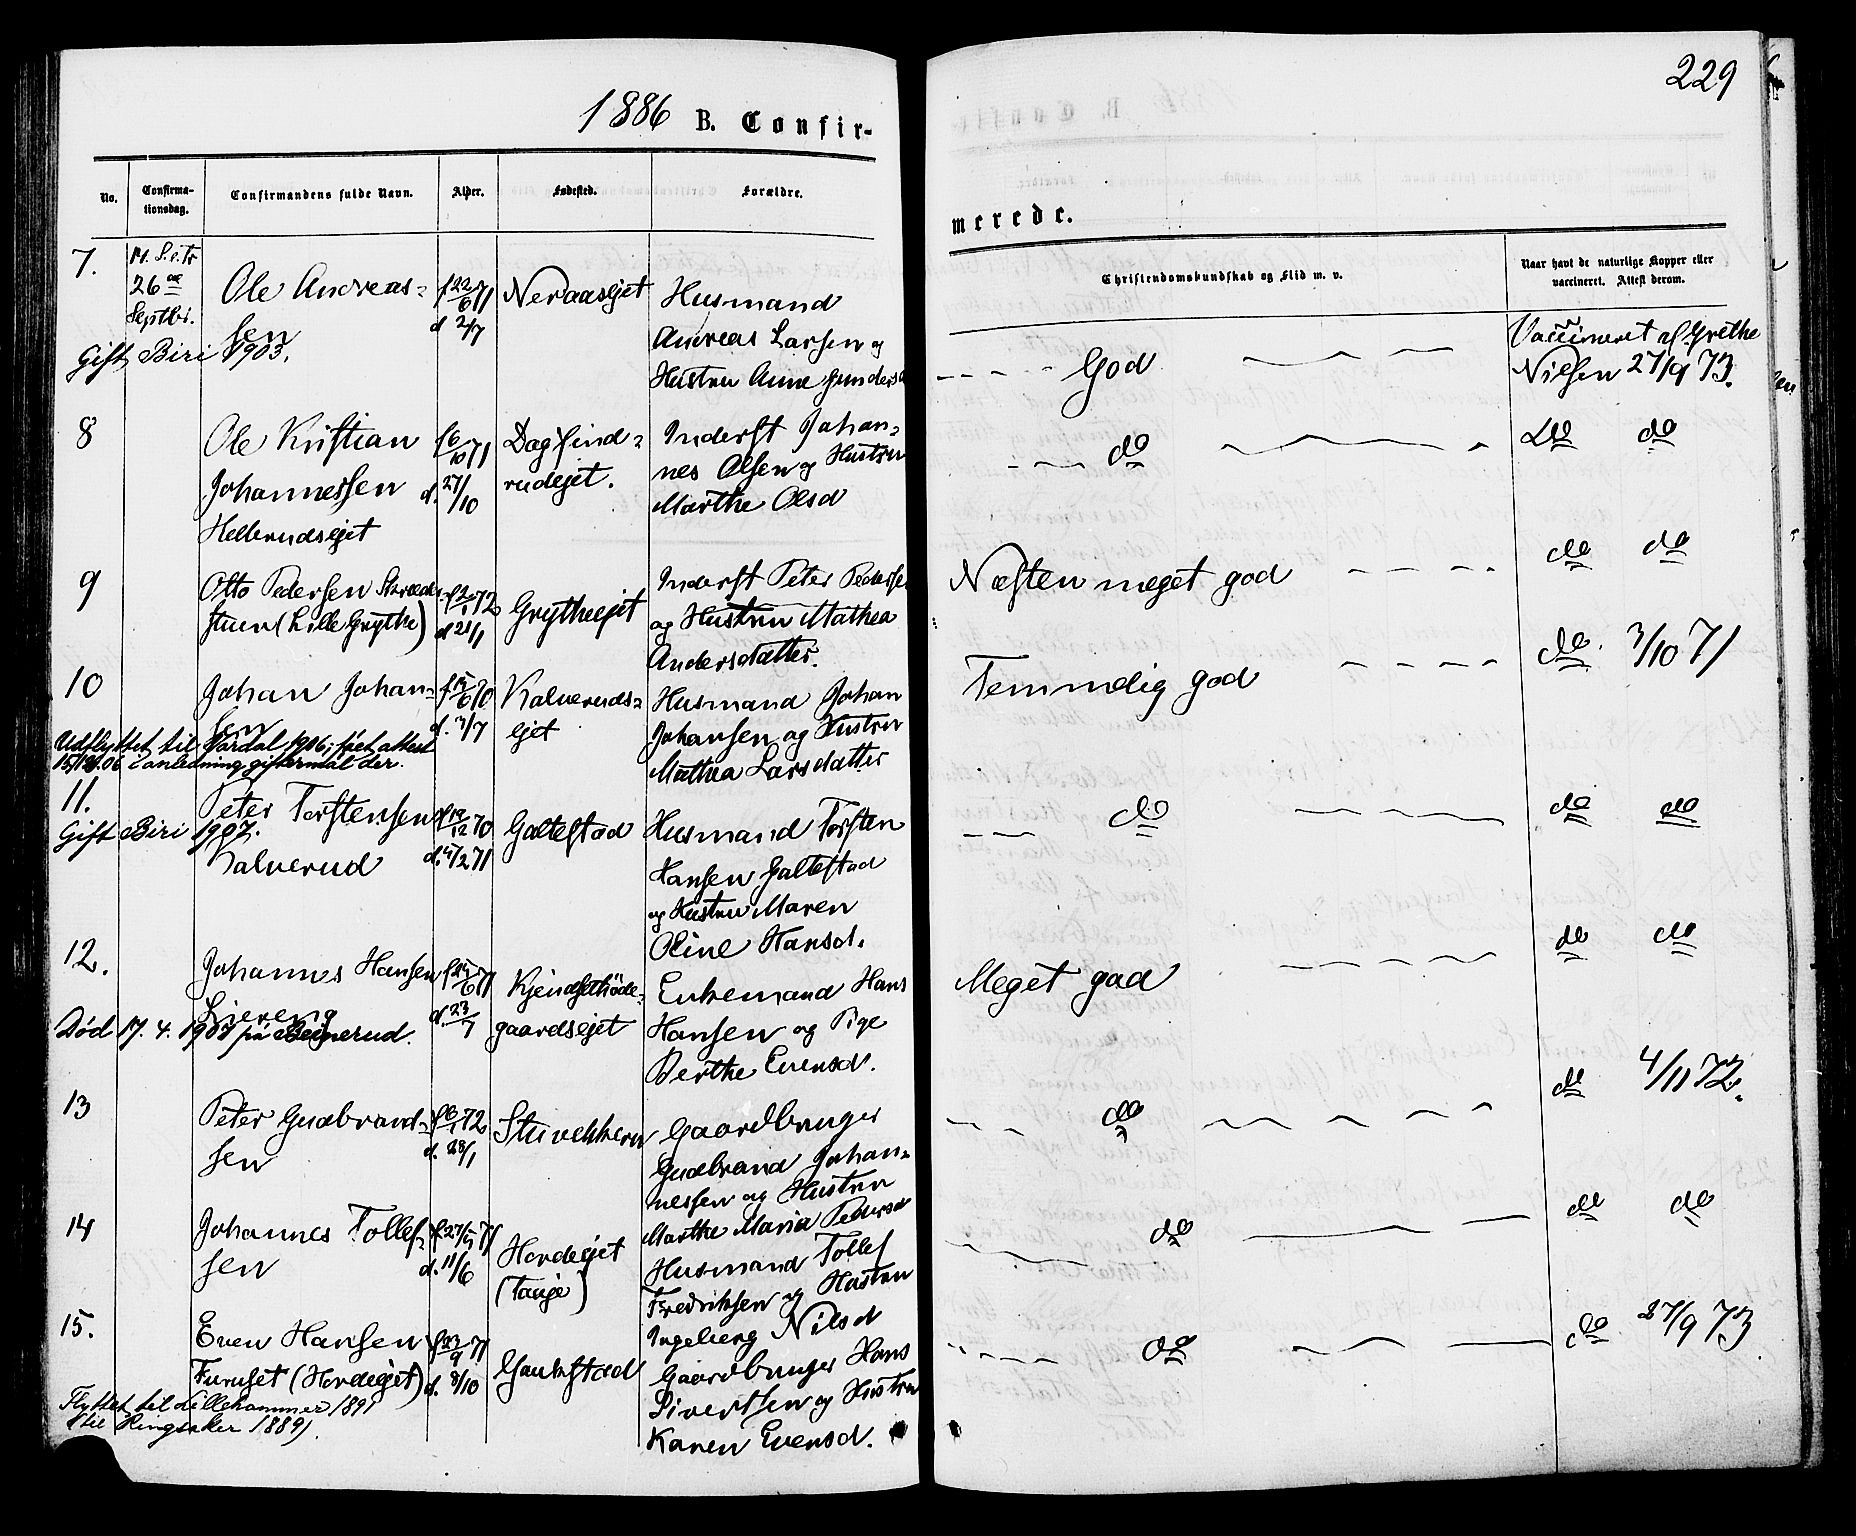 1886 B. Confir-
No.
Confirma-
tionsdag.
Confirmandens fulde Navn.
Alder.
Fødested.
Forældre.
7.
26de
Septbr.
Ole Andreas-
sen
f 22/6 71
d 2/7
Neraasejet
Husmand
Andreas Larsen og
Hustru Anne
Gift Biri 1903.
8
Ole Kristian
Johannessen
Hellerudsejet
f 6/10 71
d. 27/10
Dagfind-
rudejet.
Inderst Johan-
nes Olsen og Hustru
Marthe Olsd
9
Otto Pedersen
stuen (Lille Grythe)
f 2/1 72
d 21/1
Grytheejet
Inderst Peter Pedersen
og Hustru Mathea
Andersdatter.
10
Johan Johan-
sen
f 15/6 70
d. 3/7
Kalveruds-
ejet
Husmand Johan
Johansen og Hustru
Mathea Larsdatter
Udflyttet til Vardal 1906; fået attest
15/12.06 i anledning giftermål der.
11.
Peter Torstensen
Kalverud
f 19/12 70
d. 5/2 71
Galtestad
Husmand Torsten
Hansen Galtestad
og Hustru Maren
Oline Hansd.
Gift Biri 1907.
12.
Johannes Hansen
Liereng
f 24/6 71
d. 23/7
gaardsejet
Enkemand Hans
Hansen og Pige
Berthe Evensd.
Død 17.4.1907 på
13
Peter Gudbrand-
sen
f 6/1 72
d. 28/1
Stuvekkern
Gaardbruger
Gudbrand Johan-
nessen og Hustru
Marthe Maria Pedersd
14
Johannes Tollef-
sen
f. 27/5 71
d. 11/6
Hovdeejet
Husmand Tollef
Fredriksen og Hustru
Ingeborg Nilsd
15.
Even Hansen
Furuset (Hovdeejet)
f 23/9 71
d. 8/10
Gaukstad
Gaardbruger Hans
Sivertsen og Hustru
Karen Evensd.
Flyttet til Lillehammer 1891
(til Ringsaker 1889).
229
merede.
Christendomskundskab og Flid m. v.
Naar havt de naturlige Kopper eller
vaccineret. Attest derom.
God
Vaccineret af Grethe
Nilsen 27/9 73.
do
do do
Næsten meget god
do do
Temmelig god
do. 3/10 71
do
do do
Meget god
do do
do
do 4/11 72.
do
do do
do
do 27/9 73